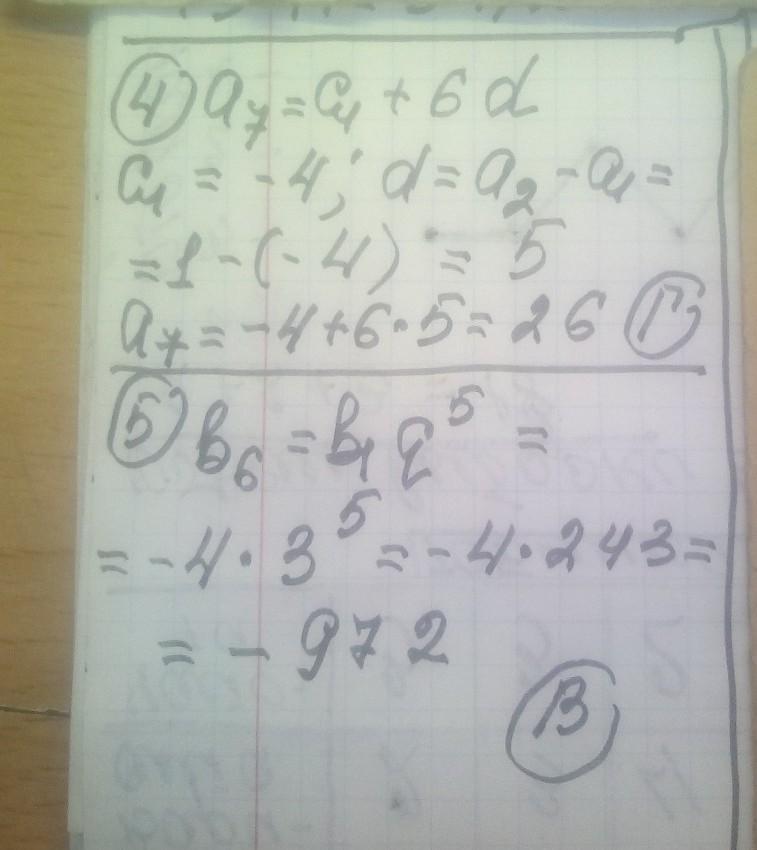 ④ a₇ = a₁ + 6d
a₁ = -4; d = a₂ - a₁ =
= 1 - (-4) = 5
a₇ = -4 + 6·5 = 26 Г
⑤ b₆ = b₁ q⁵ =
= -4 · 3⁵ = -4 · 243 =
= -972
В